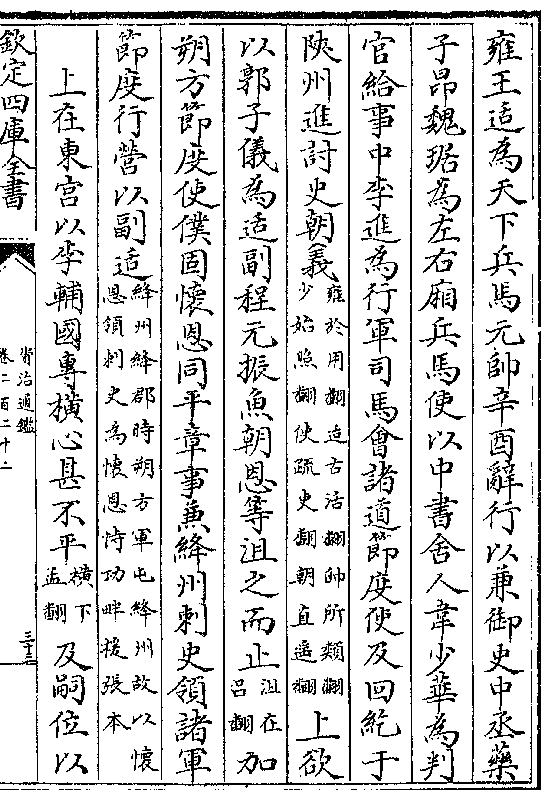 雍王适為天下兵馬元帥辛酉辭行以兼御史中丞藥
子昂魏琚為左右廂兵馬使以中書舍人韋少華為判
官給事中李進為行軍司馬會諸道節度使及回紇于
陜州進討史朝義雍於用翻适古活翻帥所類翻少始照翻使疏吏翻朝直遥翻上欲
以郭子儀為适副程元振魚朝恩等沮之而止沮在吕翻加
朔方節度使僕固懷恩同平章事兼絳州刺史領諸軍
節度行營以副适絳州絳郡時朔方軍屯絳州故以懷恩領刺史為懷恩恃功畔援張本
上在東宫以李輔國專横心甚不平横下孟翻及嗣位以
欽定四庫全書
資治通鑑
卷二百二十二
三十三